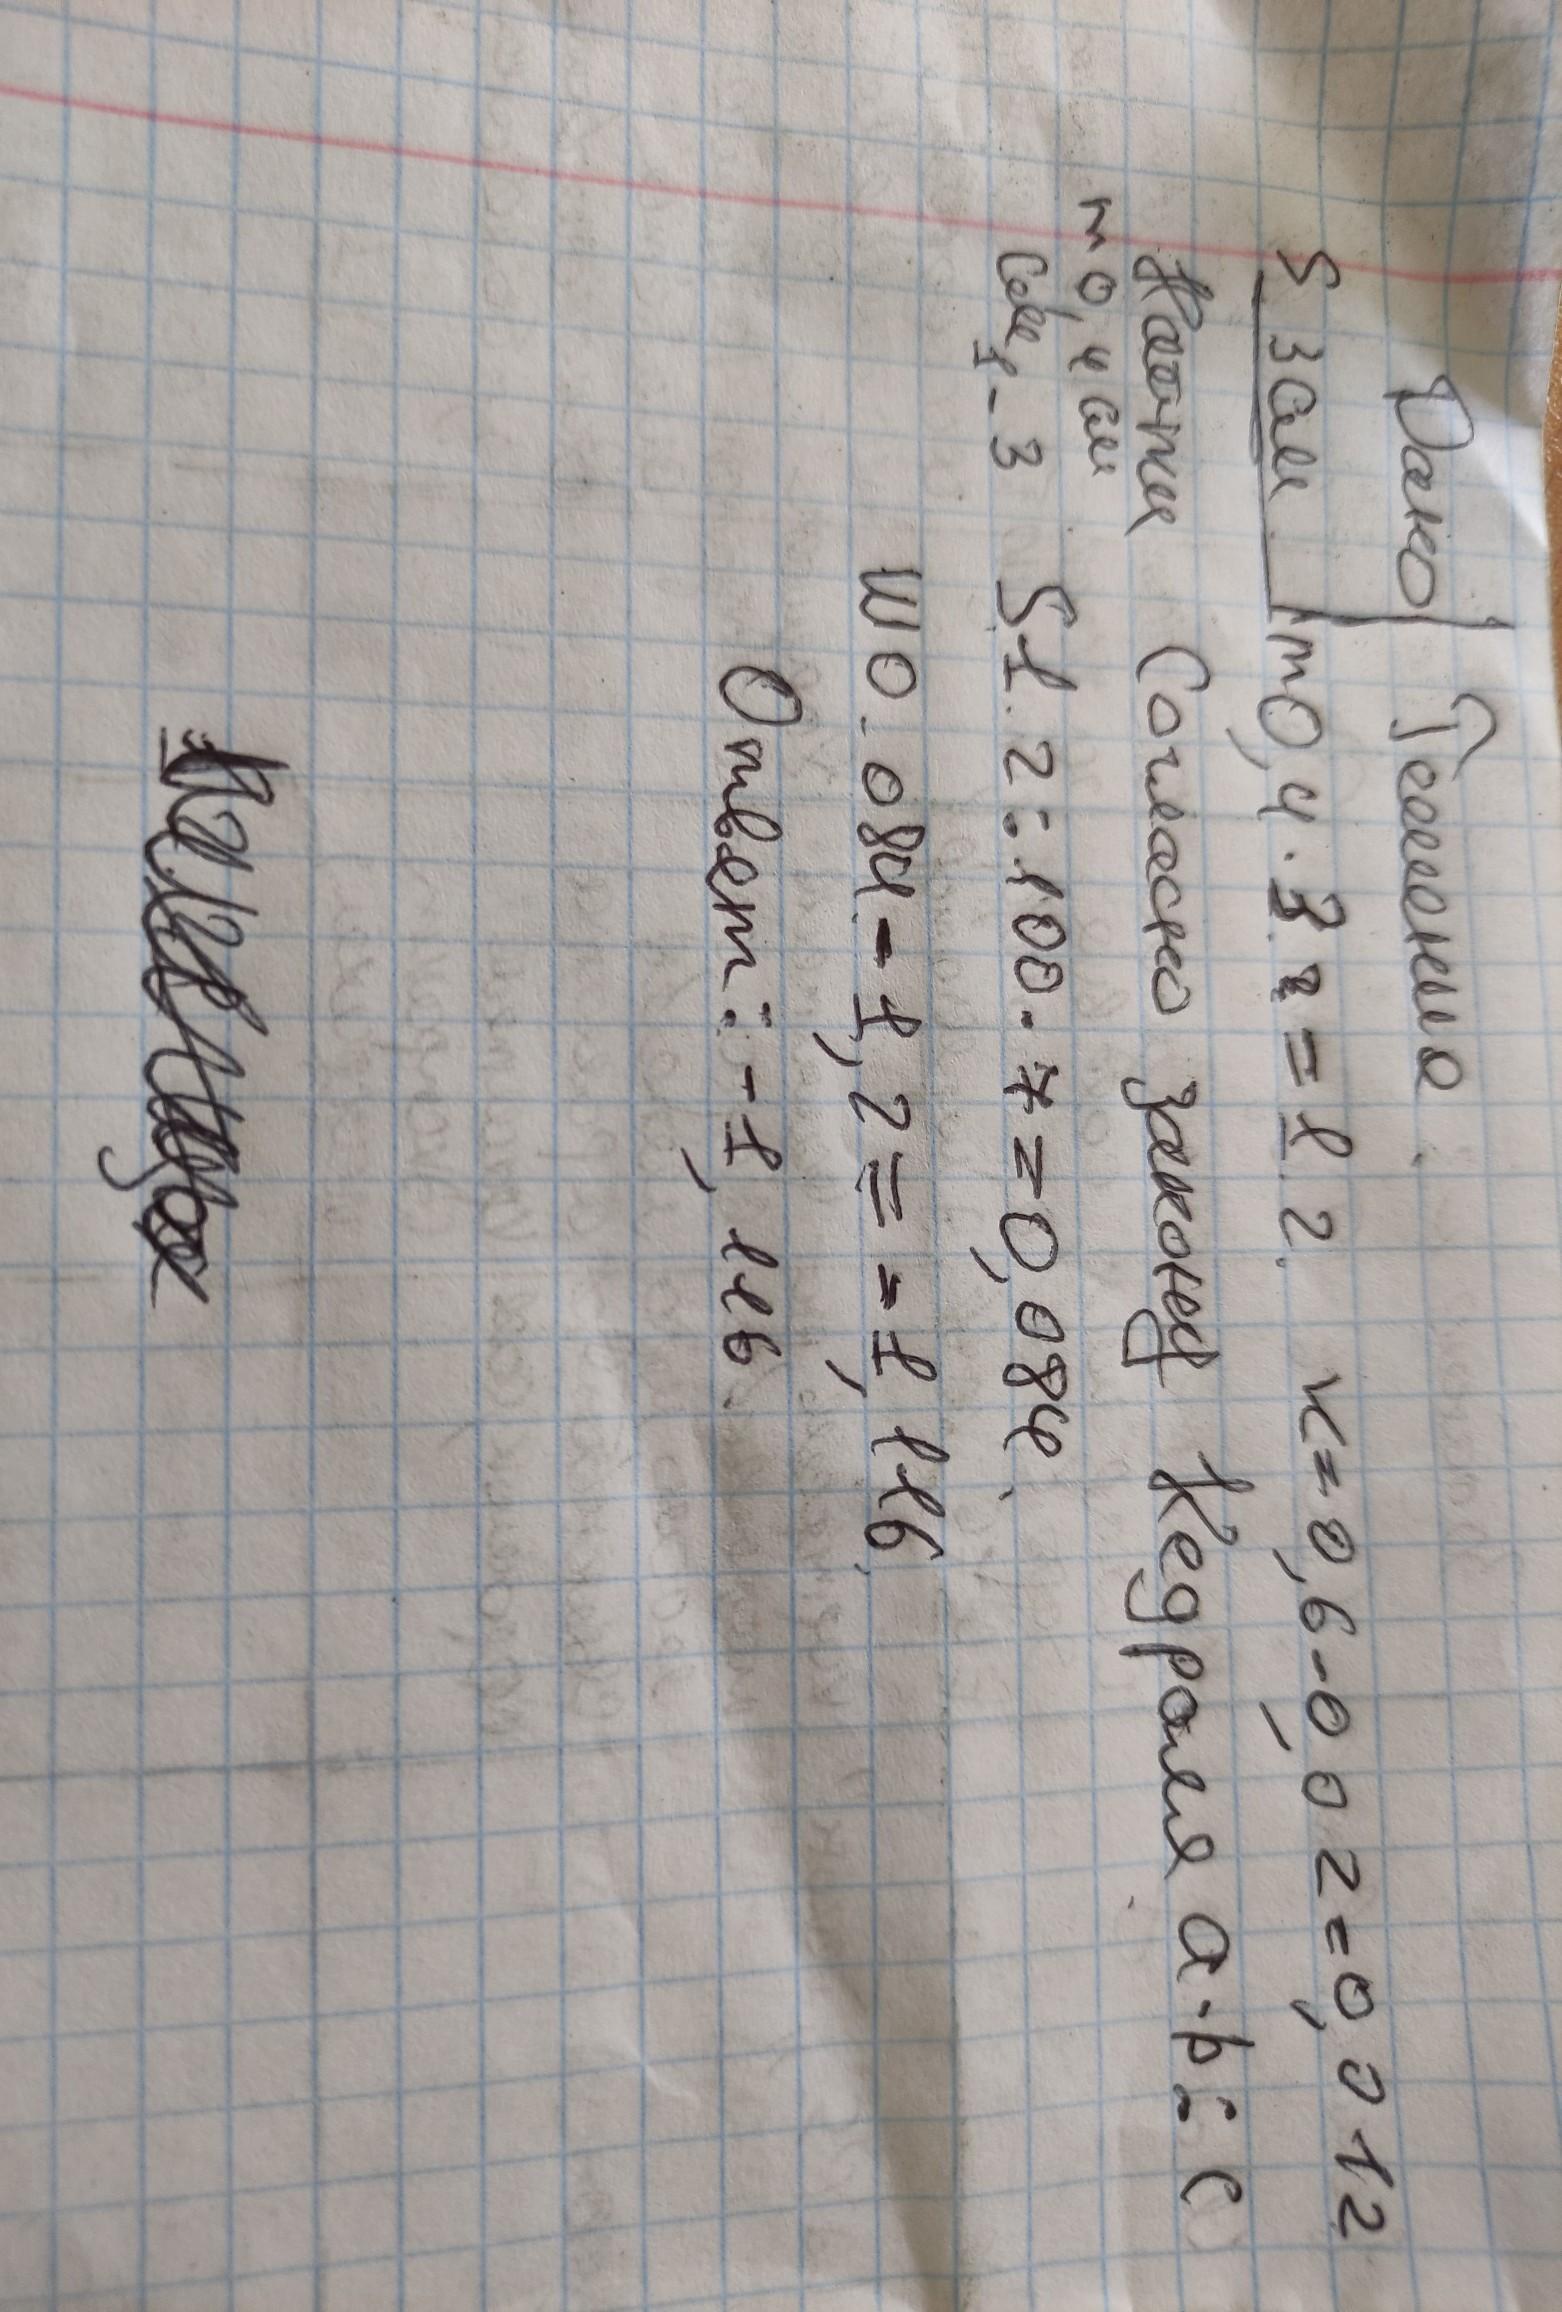 Дано Решение.
S 3см m0,4 · 3 = 1.2. к=0,6-0,02=0,012
Найти Согласно закону Кедроля a·b÷c
m 0,4 см
См 1-3 S1.2÷100·*=0,084.
Ш0.084-1,2==-1,116.
Ответ: -1,116.